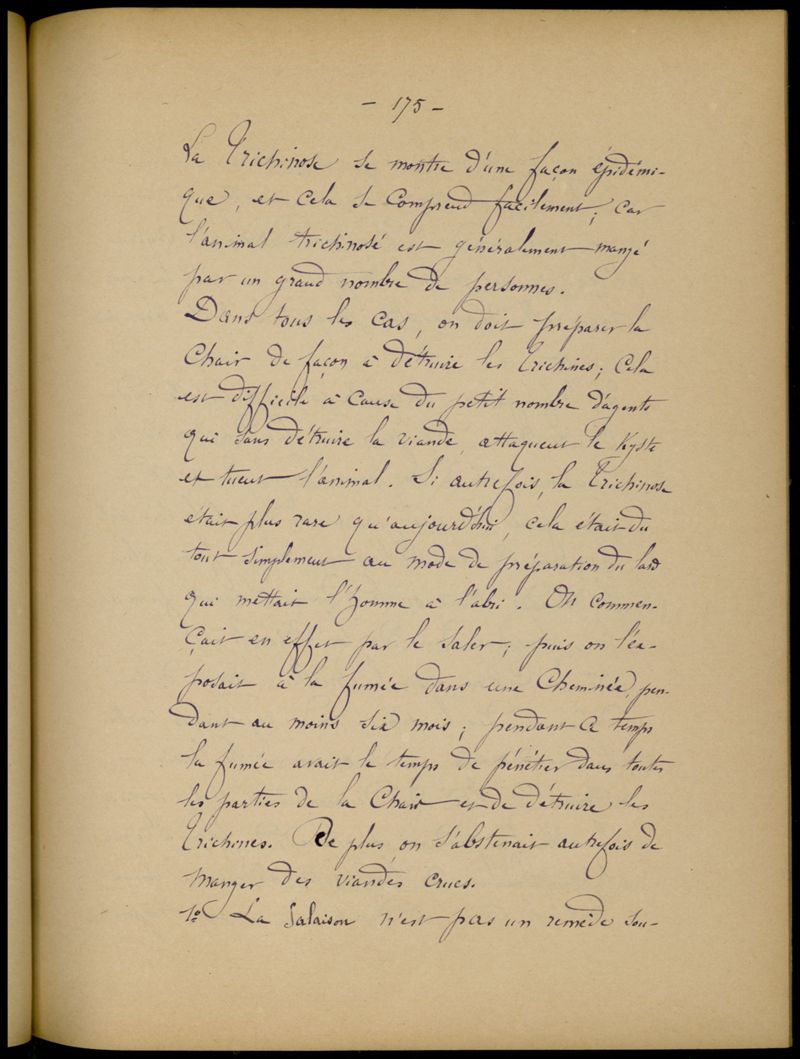 - 175 -
La Trichinose se montre d'une façon épidémi-
que, et cela se comprend facilement; car
l'animal trichinosé est généralement mangé
par un grand nombre de personnes.
Dans tous les cas, on doit préparer la
Chair de façon à détruire les Trichines; Cela
est difficile à cause du petit nombre d'agents
qui sans détruire la viande, attaquent le Kyste
et tuent l'animal. Si autrefois, la Trichinose
était plus rare qu'aujourd'hui, cela était dû
tout simplement au mode de préparation du lard
qui mettait l'homme à l'abri. On commen-
çait en effet par le saler; puis on l'ex-
posait à la fumée dans une Cheminée, pen-
dant au moins six mois; pendant ce temps
la fumée avait le temps de pénétrer dans toutes
les parties de la Chair et de détruire les
Trichines. De plus on s'abstenait autrefois de
manger des viandes crues.
1º La Salaison n'est pas un remède sou-